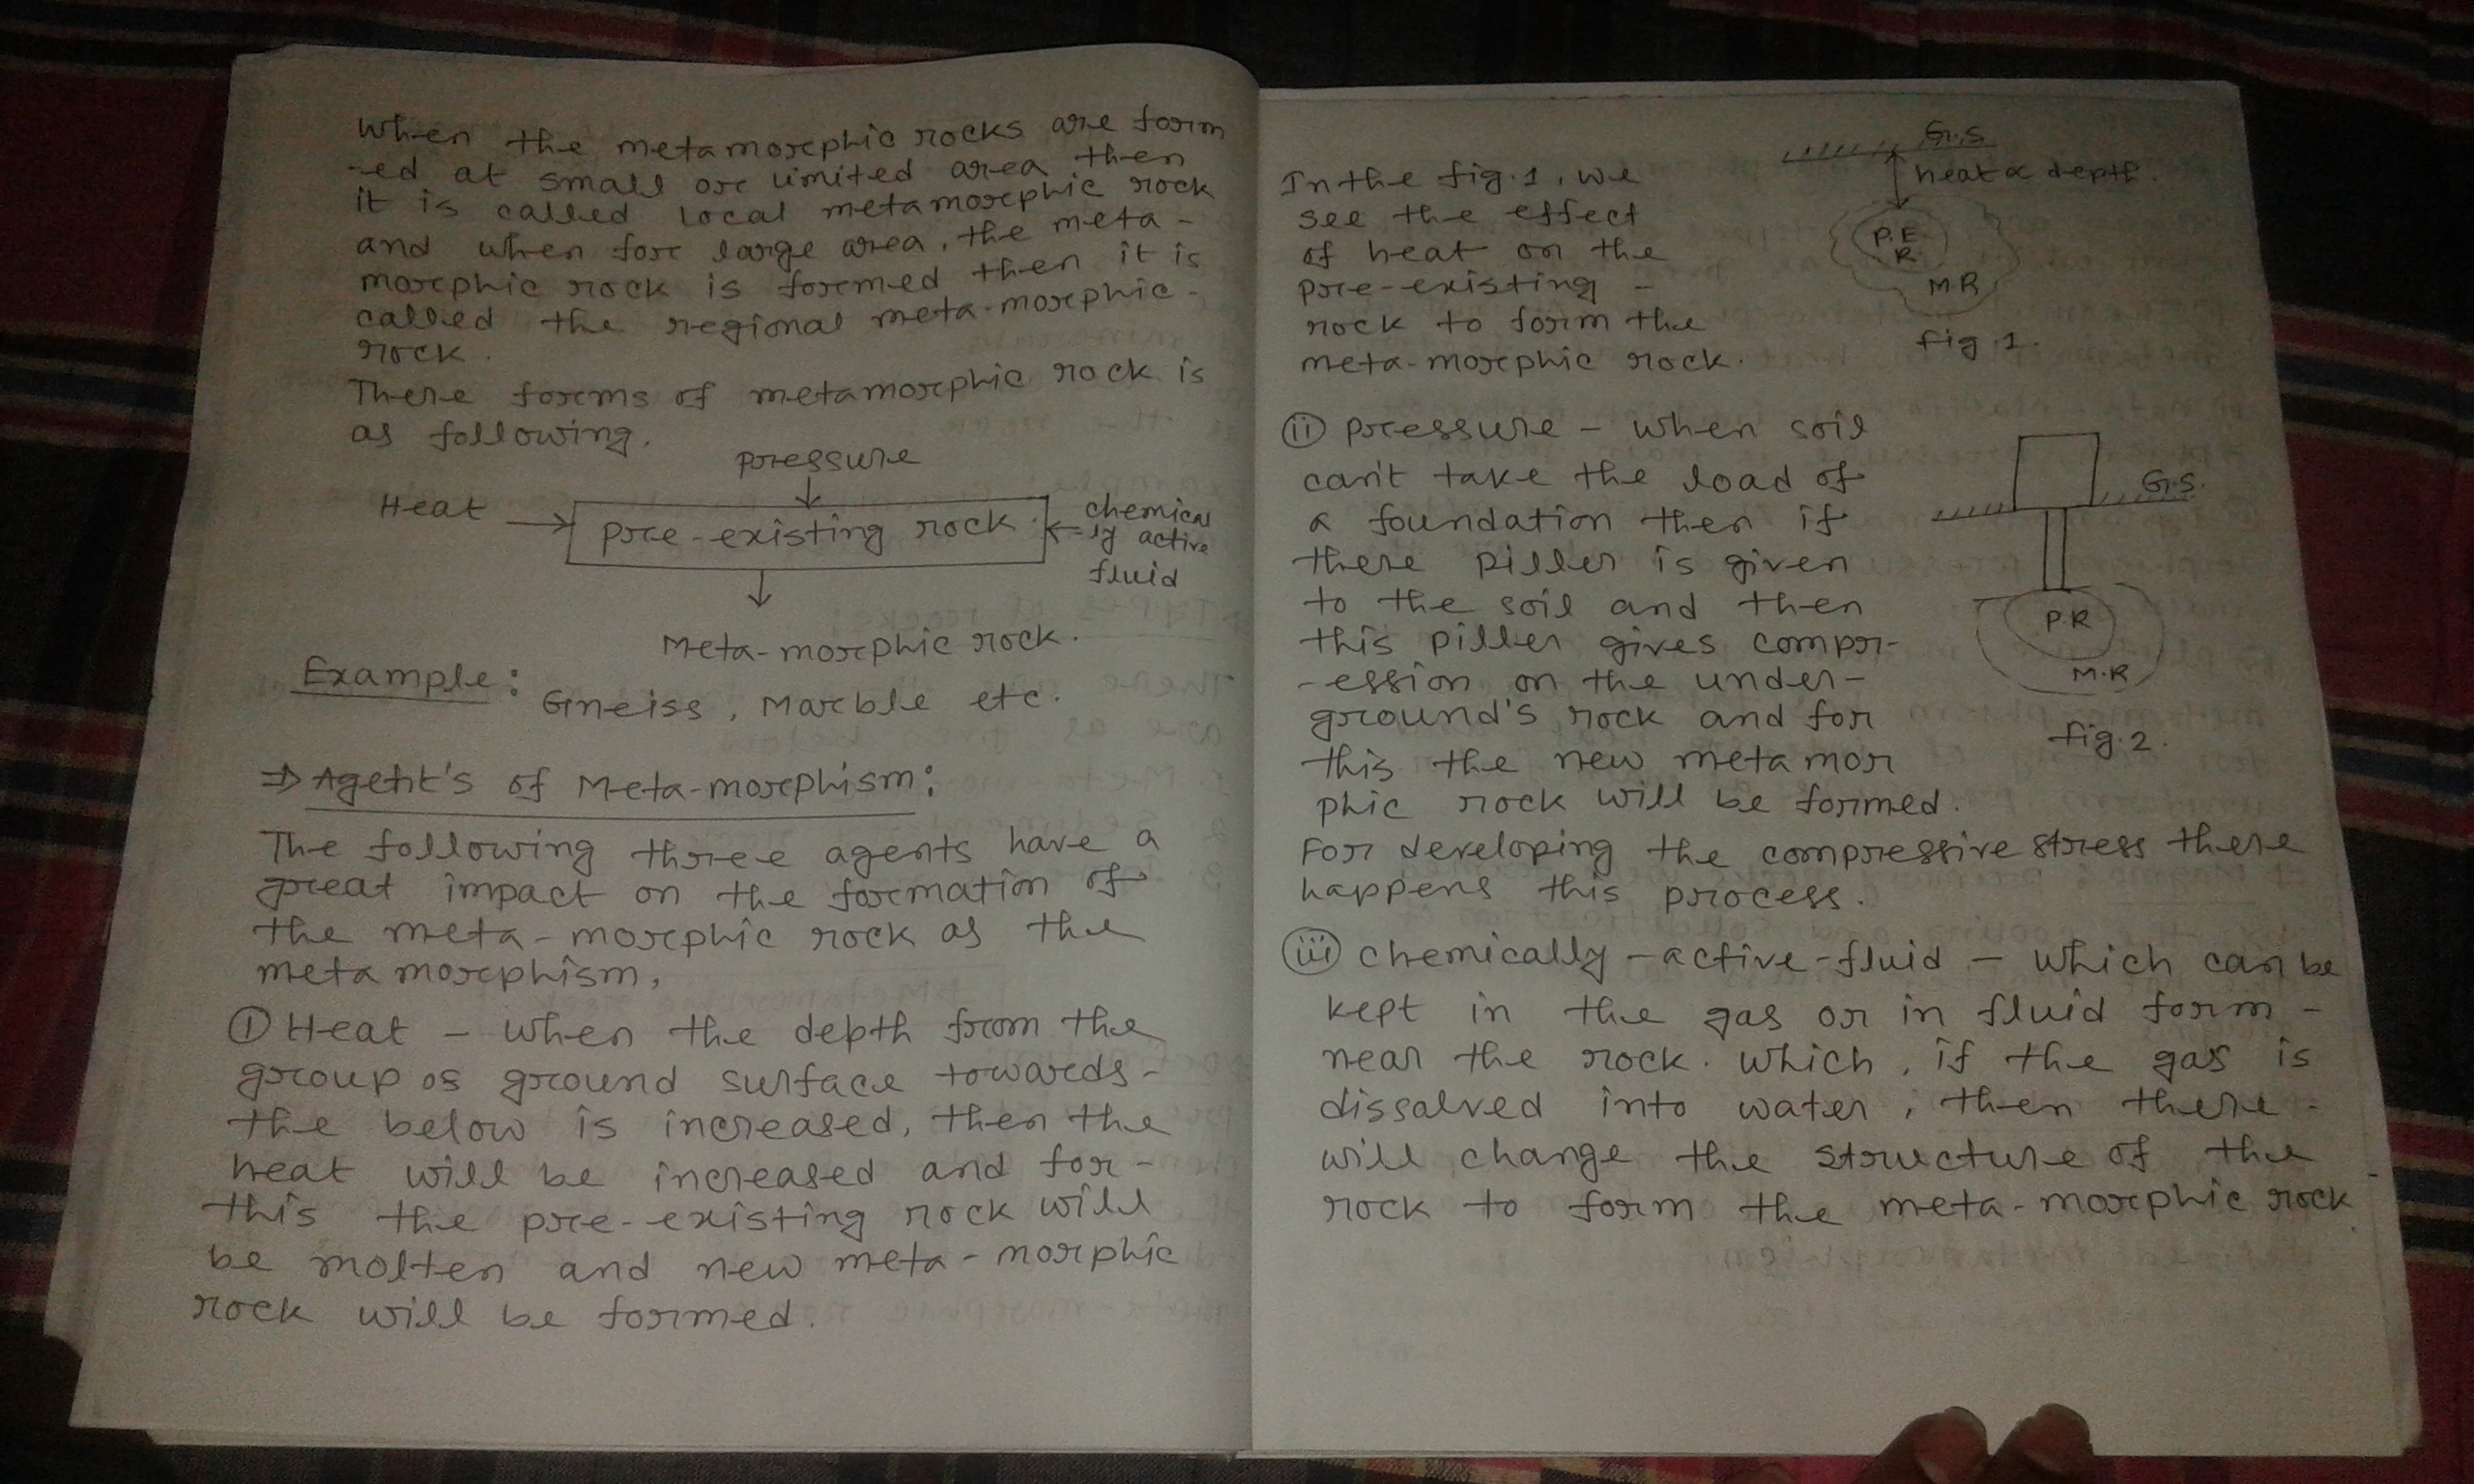 When the metamorphic rocks are form
-ed at small or limited area then
it is called local metamorphic rock
and when for large area, the meta-
morphic rock is formed then it is
called the regional meta-morphic-
rock.
There forms of metamorphic rock is
as following.
pressure
Heat
pre-existing rock
chemical
-ly active
fluid
Meta-morphic rock.
Example:
Gneiss, Marble etc.
⇒ Agent's of Meta-morphism:
The following three agents have a
great impact on the formation of
the meta-morphic rock as the
metamorphism,
① Heat - when the depth from the
group os ground surface towards-
the below is increased, then the
heat will be increased and for-
this the pre-existing rock will
be molten and new meta-morphic
rock will be formed.
In the fig.1, we
see the effect
of heat on the
pre-existing -
rock to form the
meta-morphic rock.
G.S
heat α depth.
P.E
R.
M.R
fig.1.
ⓘⓘ pressure - when soil
can't take the load of
a foundation then if
there piller is given
to the soil and then
this piller gives compr-
-ession on the under-
ground's rock and for
this the new metamor
phic rock will be formed.
G.S.
P.R
M.R
fig.2.
For developing the compressive stress there
happens this process.
(iii) chemically-active-fluid - which can be
kept in the gas or in fluid form -
near the rock. which, if the gas is
dissalved into water, then there-
will change the structure of the
rock to form the meta-morphic rock.